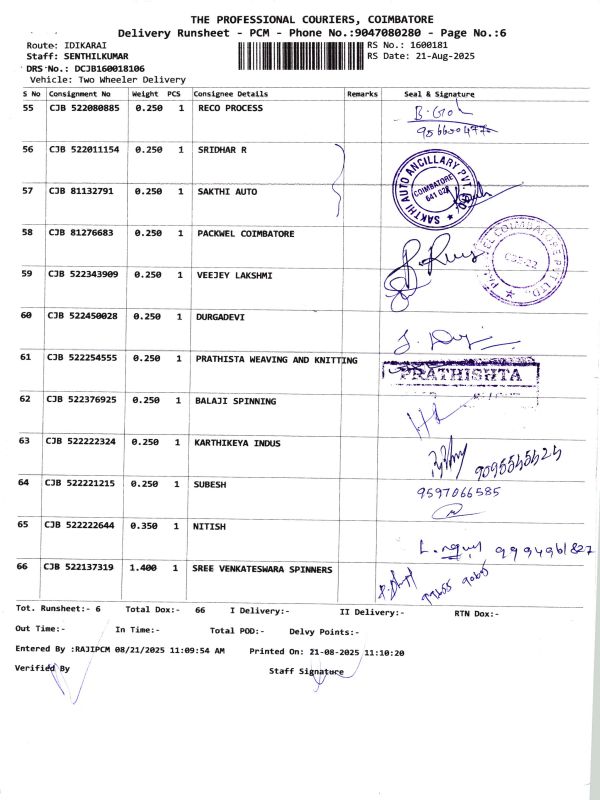 THE PROFESSIONAL COURIERS, COIMBATORE
Delivery Runsheet - PCM - Phone No.:9047080280 - Page No.:6
Route: IDIKARAI RS No.: 1600181
Staff: SENTHILKUMAR RS Date: 21-Aug-2025
DRS No.: DCJB160018106
Vehicle: Two Wheeler Delivery
S No Consignment No Weight PCS Consignee Details Remarks Seal & Signature
55 CJB 522080885 0.250 1 RECO PROCESS
56 CJB 522011154 0.250 1 SRIDHAR R
57 CJB 81132791 0.250 1 SAKTHI AUTO
SAKTHI AUTO ANCILLARY PVT.
COIMBATORE
58 CJB 81276683 0.250 1 PACKWEL COIMBATORE
COIMBATORE PVT LTD.
59 CJB 522343909 0.250 1 VEEJEY LAKSHMI
60 CJB 522450028 0.250 1 DURGADEVI
61 CJB 522254555 0.250 1 PRATHISTA WEAVING AND KNITTING
PRATHISHTA
62 CJB 522376925 0.250 1 BALAJI SPINNING
63 CJB 522222324 0.250 1 KARTHIKEYA INDUS
64 CJB 522221215 0.250 1 SUBESH
9597066585
65 CJB 522222644 0.350 1 NITISH
9994961827
66 CJB 522137319 1.400 1 SREE VENKATESWARA SPINNERS
Tot. Runsheet:- 6 Total Dox:- 66 I Delivery:- II Delivery:- RTN Dox:-
Out Time:- In Time:- Total POD:- Delvy Points:-
Entered By :RAJIPCM 08/21/2025 11:09:54 AM Printed On: 21-08-2025 11:10:20
Verified By Staff Signature